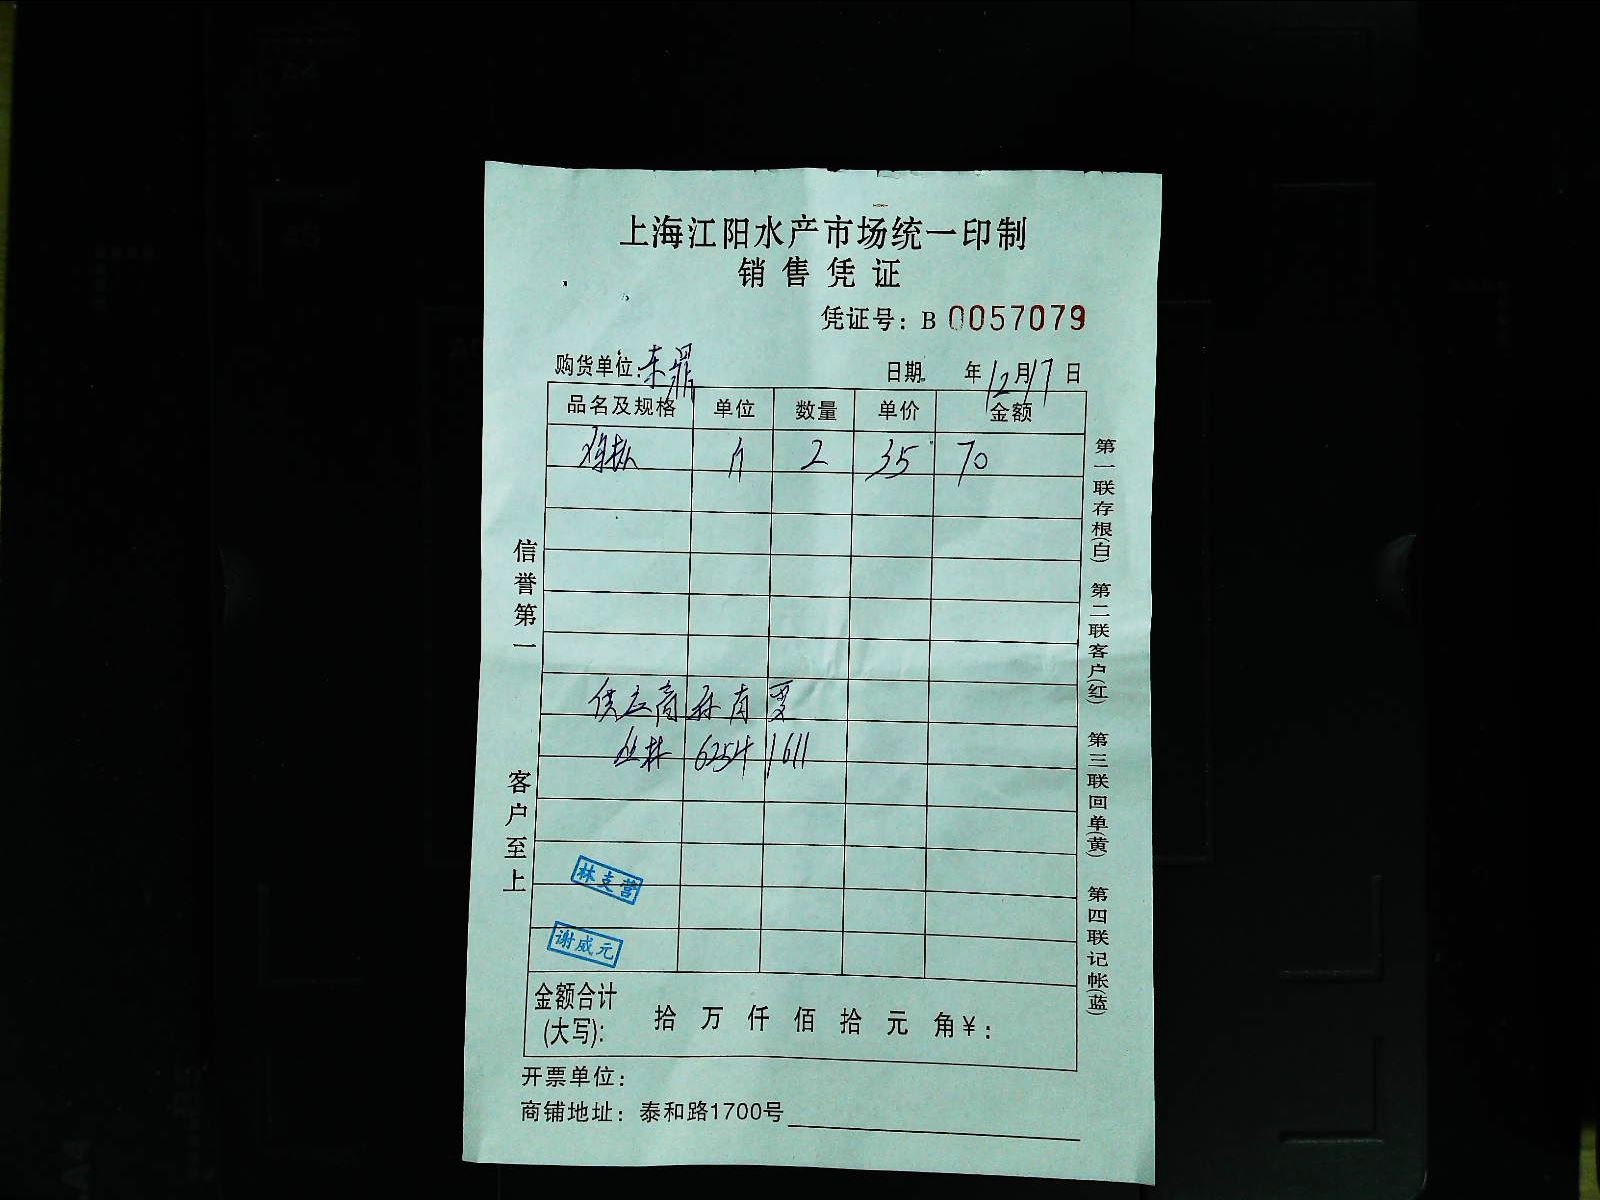 上海江阳水产市场统一印制
销售凭证
凭证号：B 0057079
购货单位：东鼎 日期 年12月17日
品名及规格 单位 数量 单价 金额
2 35 70
供应商
丛林 6254 1611
林支营
谢威元
金额合计(大写)： 拾 万 仟 佰 拾 元 角 ￥：
开票单位：
商铺地址：泰和路1700号
信誉第一 客户至上
第一联存根(白) 第二联客户(红) 第三联回单(黄) 第四联记帐(蓝)